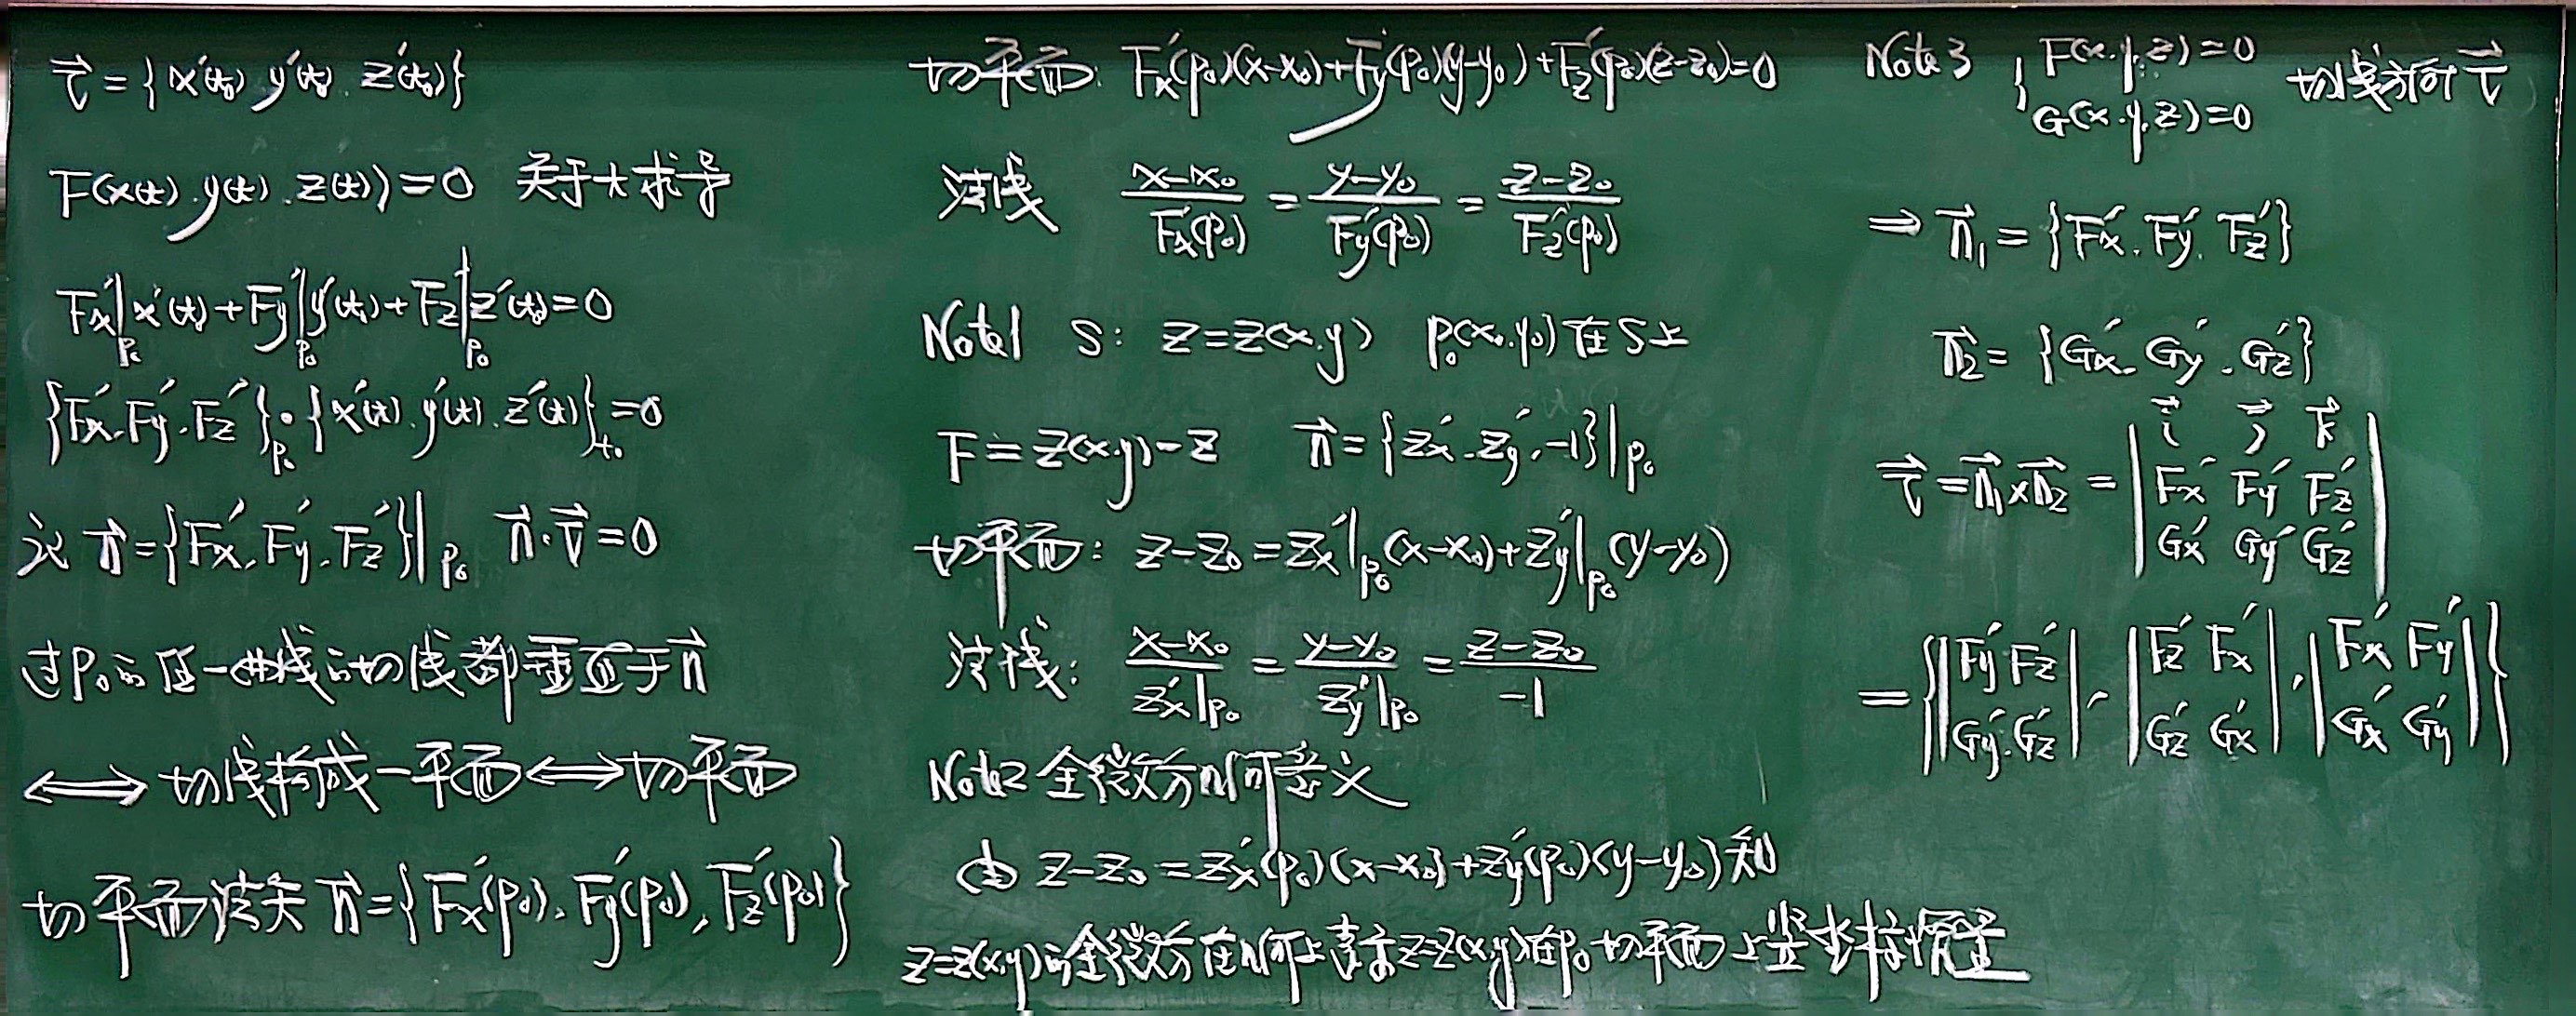 τ⃗ = {x'(t₀), y'(t₀), z'(t₀)}
F(x(t), y(t), z(t)) = 0 关于t求导
Fx'|p₀ x'(t₀) + Fy'|p₀ y'(t₀) + Fz'|p₀ z'(t₀) = 0
{Fx', Fy', Fz'}p₀ · {x'(t), y'(t), z'(t)}t₀ = 0
记 n⃗ = {Fx', Fy', Fz'}|p₀ n⃗·τ⃗ = 0
过P₀的任一曲线的切线都垂直于n⃗
⟺ 切线构成一平面 ⟺ 切平面
切平面法矢 n⃗ = {Fx'(p₀), Fy'(p₀), Fz'(p₀)}
切平面: Fx'(p₀)(x-x₀) + Fy'(p₀)(y-y₀) + Fz'(p₀)(z-z₀) = 0
法线 (x-x₀)/Fx'(p₀) = (y-y₀)/Fy'(p₀) = (z-z₀)/Fz'(p₀)
Note1 S: z=z(x,y) p₀(x₀,y₀)在S上
F = z(x,y) - z n⃗ = {zx', zy', -1}|p₀
切平面: z-z₀ = zx'|p₀(x-x₀) + zy'|p₀(y-y₀)
法线: (x-x₀)/zx'|p₀ = (y-y₀)/zy'|p₀ = (z-z₀)/-1
Note2 全微分几何意义
由 z-z₀ = zx'(p₀)(x-x₀) + zy'(p₀)(y-y₀) 知
z=z(x,y)的全微分在几何上表示z=z(x,y)在p₀切平面上竖坐标增量
Note3 { F(x,y,z)=0 切线方向 τ⃗
G(x,y,z)=0
⇒ n⃗₁ = {Fx', Fy', Fz'}
n⃗₂ = {Gx', Gy', Gz'}
τ⃗ = n⃗₁×n⃗₂ = | i⃗ j⃗ k⃗
Fx' Fy' Fz'
Gx' Gy' Gz' |
= { |Fy' Fz'|, |Fz' Fx'|, |Fx' Fy'|
|Gy' Gz'| |Gz' Gx'| |Gx' Gy'| }